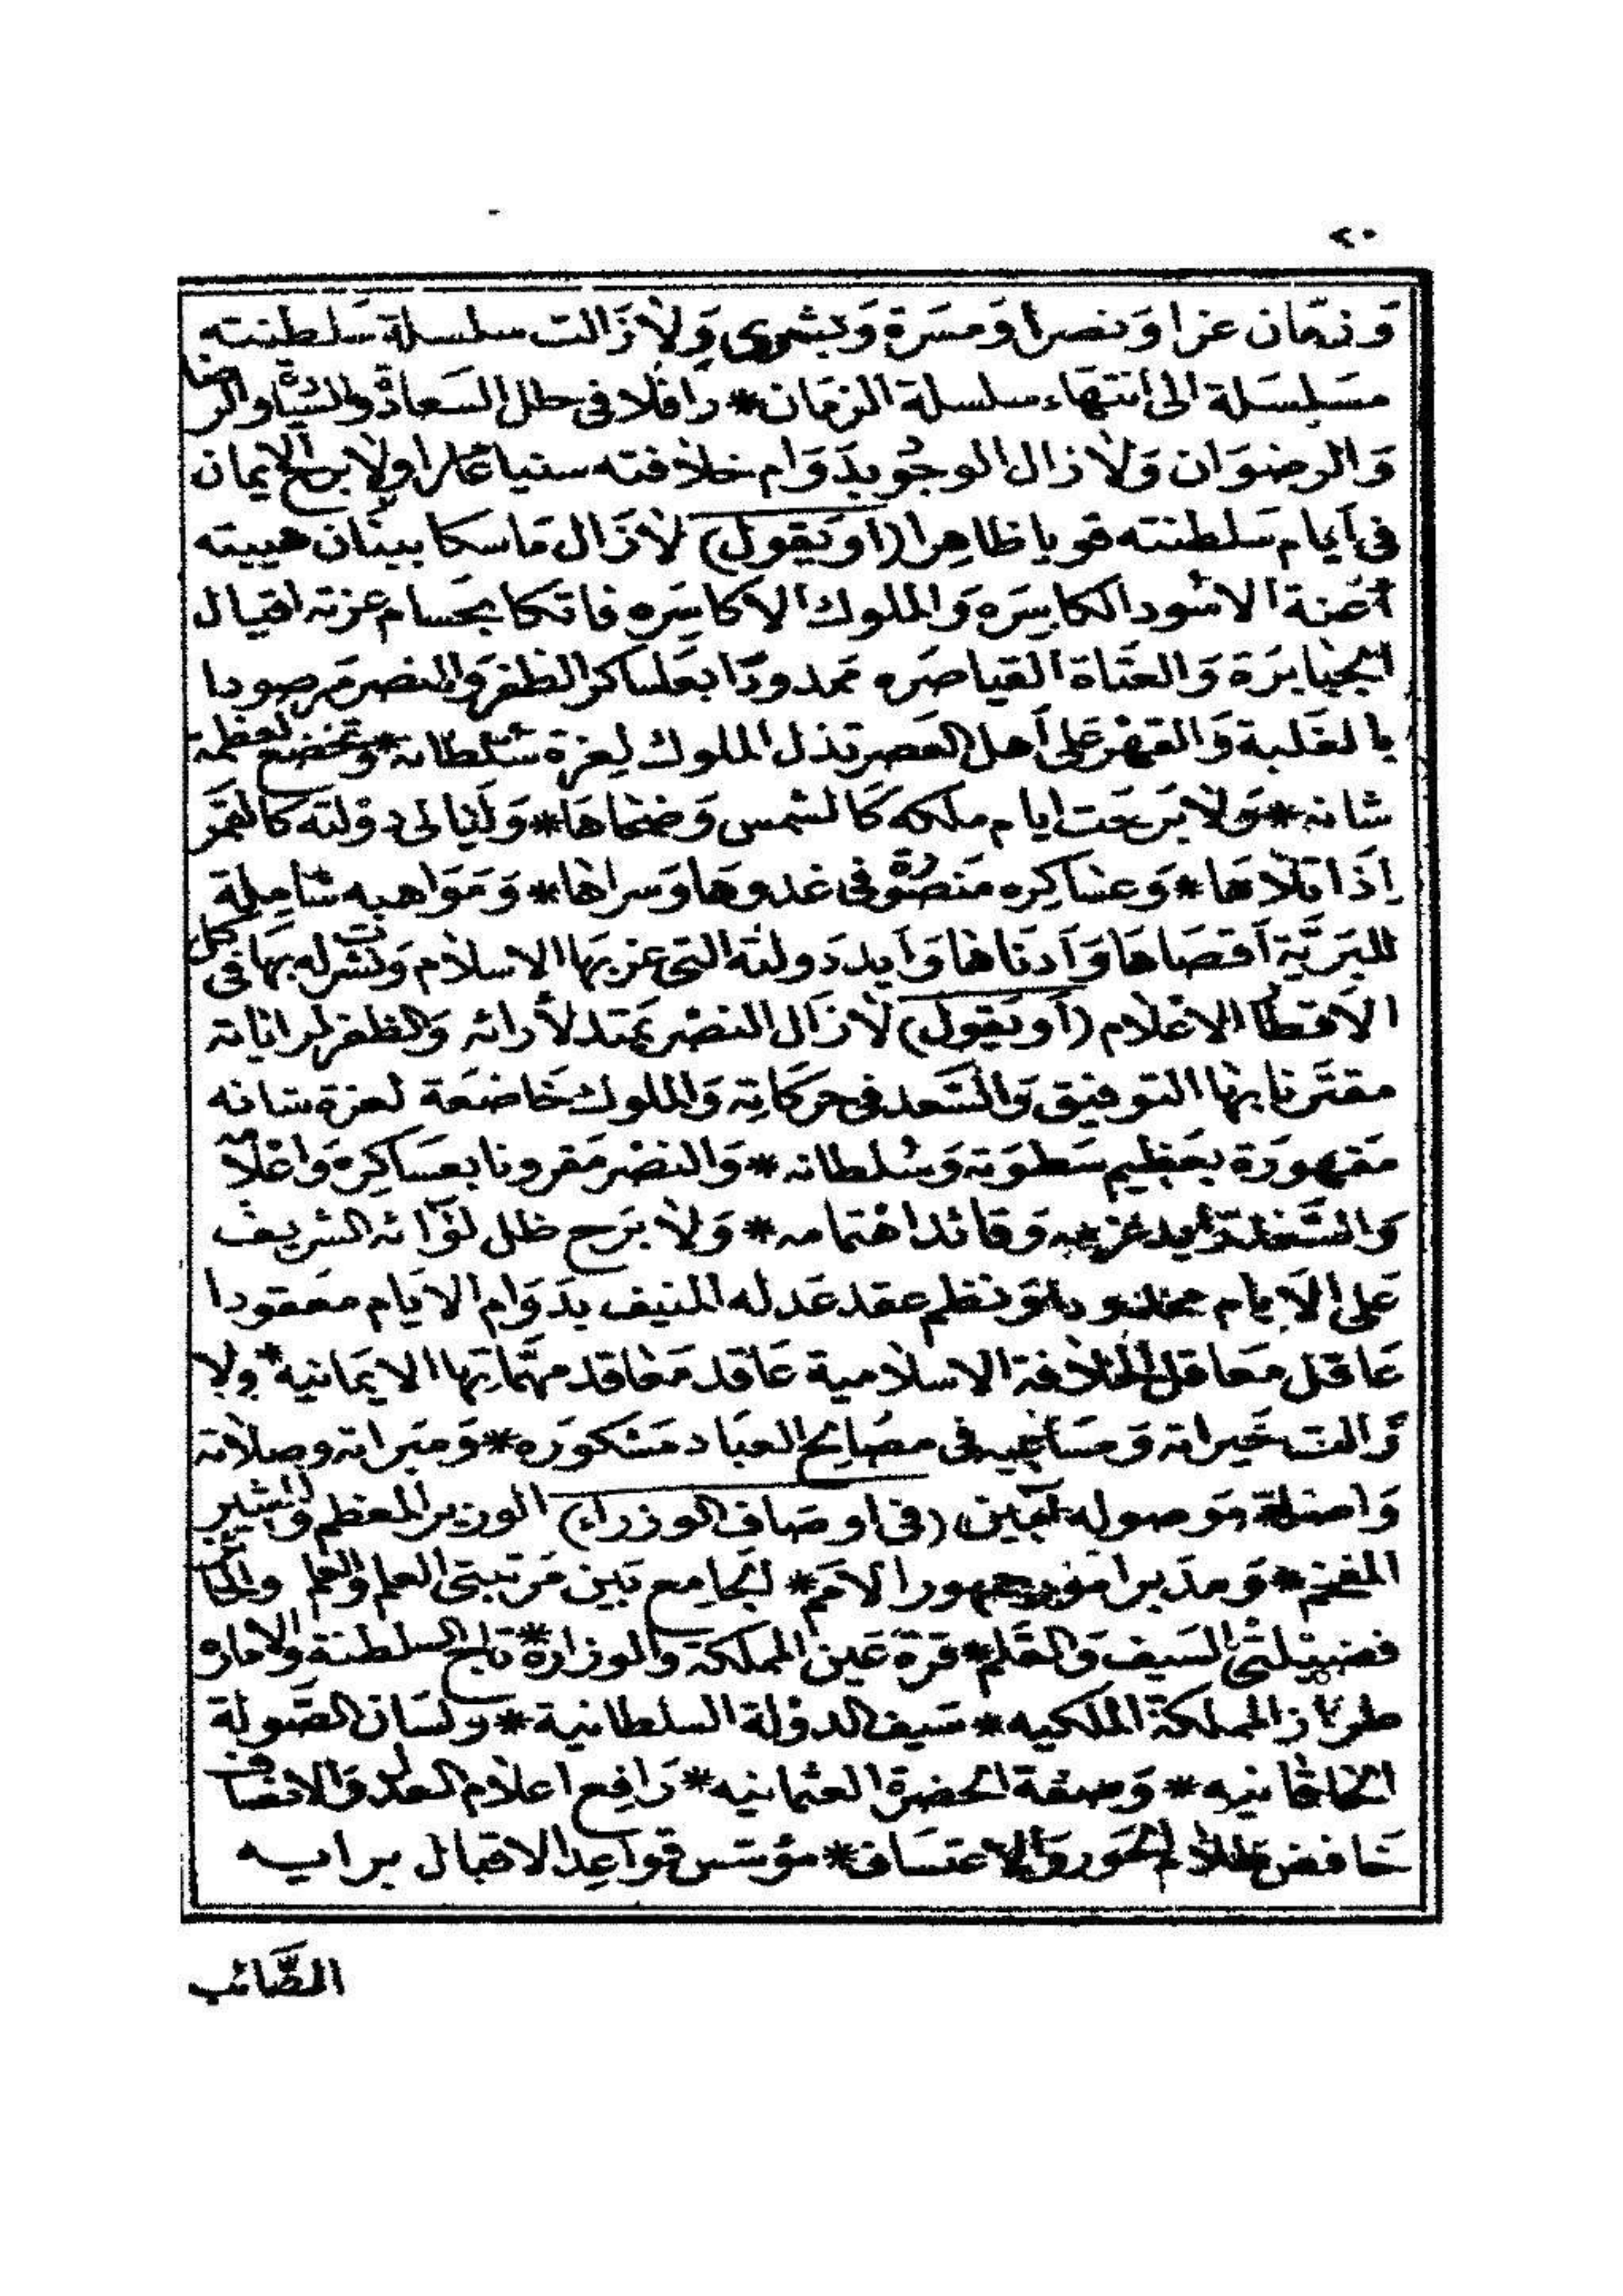 ٢٠
وزمان عزا ونصرا ومسرة وبشرى ولازالت سلسلة سلطنته
مسلسلة الى انتهاء سلسلة الزمان * رافلا فى حلل السعادة والسيادة والرضا
والرضوان ولازال الوجود بدوام خلافته سنيا عامرا ولا برح الايمان
فى ايام سلطنته قويا ظاهرا (او يقول) لازال ماسكا ببنان هيبته
أعنة الاسود الكاسره والملوك الاكاسره فاتكا بحسام عزته اقيال
الجبابرة والعتاة القياصره ممدودا بعساكر الظفر والنصر مرصودا
بالغلبة والقهر على أهل العصر تذل الملوك لعزة سلطانه * وتخضع لعظمة
شانه * ولا برحت ايام ملكه كالشمس وضحاها * وليالى دولته كالقمر
إذا تلاها * وعساكره منصورة فى غدوها وسراها * ومواهبه شاملة
للبرية أقصاها وأدناها وأيد دولته التى عز بها الاسلام ونشر له بها فى كل
الاقطار الاعلام (أو يقول) لازال النصر يمتد لأرائه والظفر لراياته
مقترنا بها التوفيق والسعد فى حركاته والملوك خاضعة لعزة شانه
مقهورة بعظيم سطوته وسلطانه * والنصر مقرونا بعساكره واعلامه
والسعد وقائد اهتمامه * ولا برح ظل لوائه الشريف
على الايام ونظم عقد عدله المنيف بدوام الايام معقودا
عاقل معاقل الخلافة الاسلامية عاقد معاقد مهماتها الايمانية * ولا
زالت خيراته ومساعيه فى مصالح العباد مشكوره * ومبراته وصلاته
واصلة موصوله آمين (فى اوصاف الوزراء) الوزير المعظم والمشير
المفخم * ومدبر امور جمهور الامم * الجامع بين مرتبتى العلم والعلم والحائز
فضيلتى السيف والقلم * قرة عين المملكة والوزارة * تاج السلطنة والاماره
طراز المملكة الملكيه * سيف الدولة السلطانية * ولسان الصولة
الخاقانيه * وصفة الحضرة العثمانيه * رافع اعلام العدل والانصاف
خافض ظلام الجور والاعتساف * مؤسس قواعد الاقبال برايه
الصائب